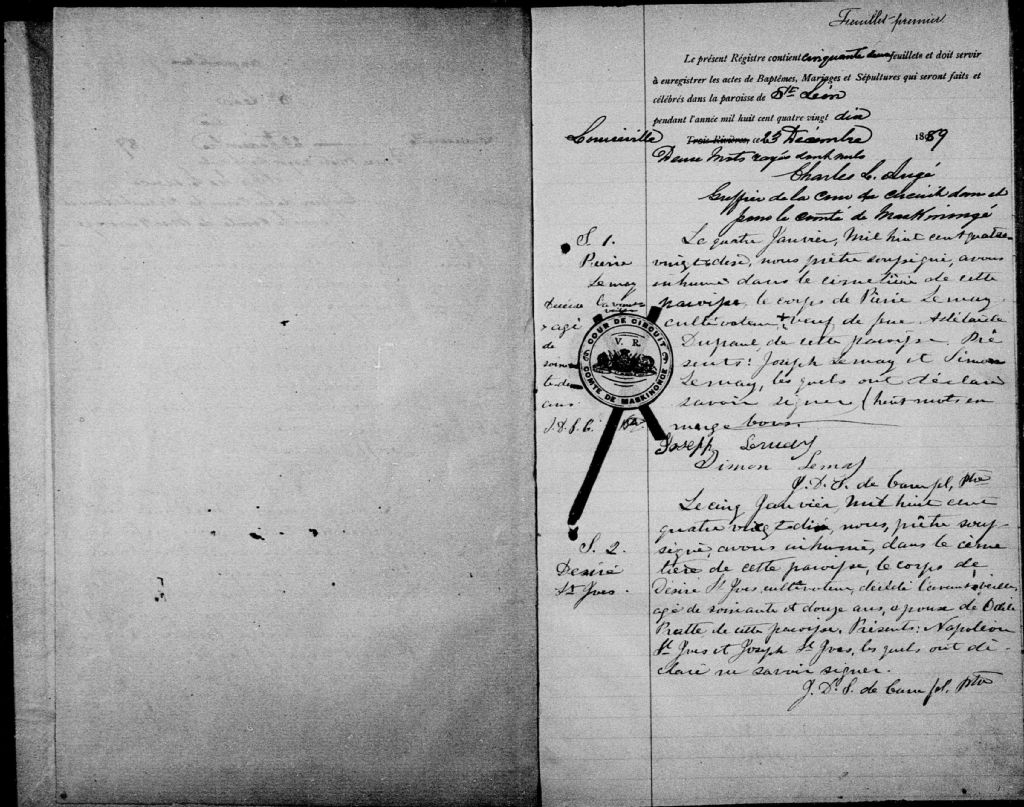 Feuillet premier
Le présent Régistre contient cinquante deux feuillets et doit servir
à enregistrer les actes de Baptêmes, Mariages et Sépultures qui seront faits et
célébrés dans la paroisse de Ste Léon
pendant l'année mil huit cent quatre vingt dix
Louiseville Trois-Rivières, ce 23 Décembre 1889
Deux mots rayés sont nuls
Charles L. Augé
Greffier de la cour de circuit dans et
pour le comté de Maskinongé
S. 1.
Pierre
Lemay
décédé l'avant
veille
+ agé
de
soixan
te
ans.
J.D.S.C. ptre
COUR DE CIRCUIT
V. R.
COMTE DE MASKINONGE
Le quatre Janvier, Mil huit cent quatre
vingt & dix, nous prêtre soussigné, avons
inhumé dans le cimetière de cette
paroisse, le corps de Pierre Lemay
cultivateur + veuf de feue Adélaide
Dupaul de cette paroisse. Pré
sents: Joseph Lemay et Simon
Lemay, lesquels ont déclaré
savoir signer (huit mots en
marge bons.
Joseph Lemay
Simon Lemay
J. D. S. de Campl, ptre
S. 2.
Désiré
St Yves.
Le cinq Janvier, Mil huit cent
quatre vingt & dix, nous, prêtre sous-
signé, avons inhumé, dans le cime
tière de cette paroisse, le corps de
Désiré St Yves, cultivateur, décédé l'avant veille
agé de soixante et douze ans, epoux de Odile
Pratte de cette paroisse. Présents: Napoléon
St Yves et Joseph St Yves, lesquels ont dé-
claré ne savoir signer.
J. D. S. de Campl. ptre